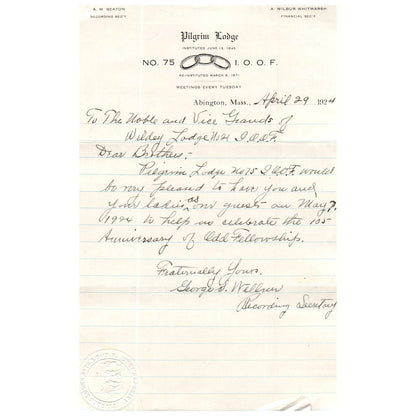 A. W. BEATON
RECORDING SEC'Y
A. WILBUR WHITMARSH
FINANCIAL SEC'Y
Pilgrim Lodge
INSTITUTED JUNE 10, 1845
NO. 75 I. O. O. F.
RE-INSTITUTED MARCH 8, 1871
MEETINGS EVERY TUESDAY
Abington, Mass., April 29 1924
To The Noble and Vice Grands of
Wildey Lodge No 4 I.O.O.F.
Dear Brothers,-
Pilgrim Lodge No 75 I.O.O.F. would
be very pleased to have you and
your ladies as our guests on May 7,
1924 to help us celebrate the 105
Anniversary of Odd Fellowship.
Fraternally Yours.
George S.
Recording Secretary